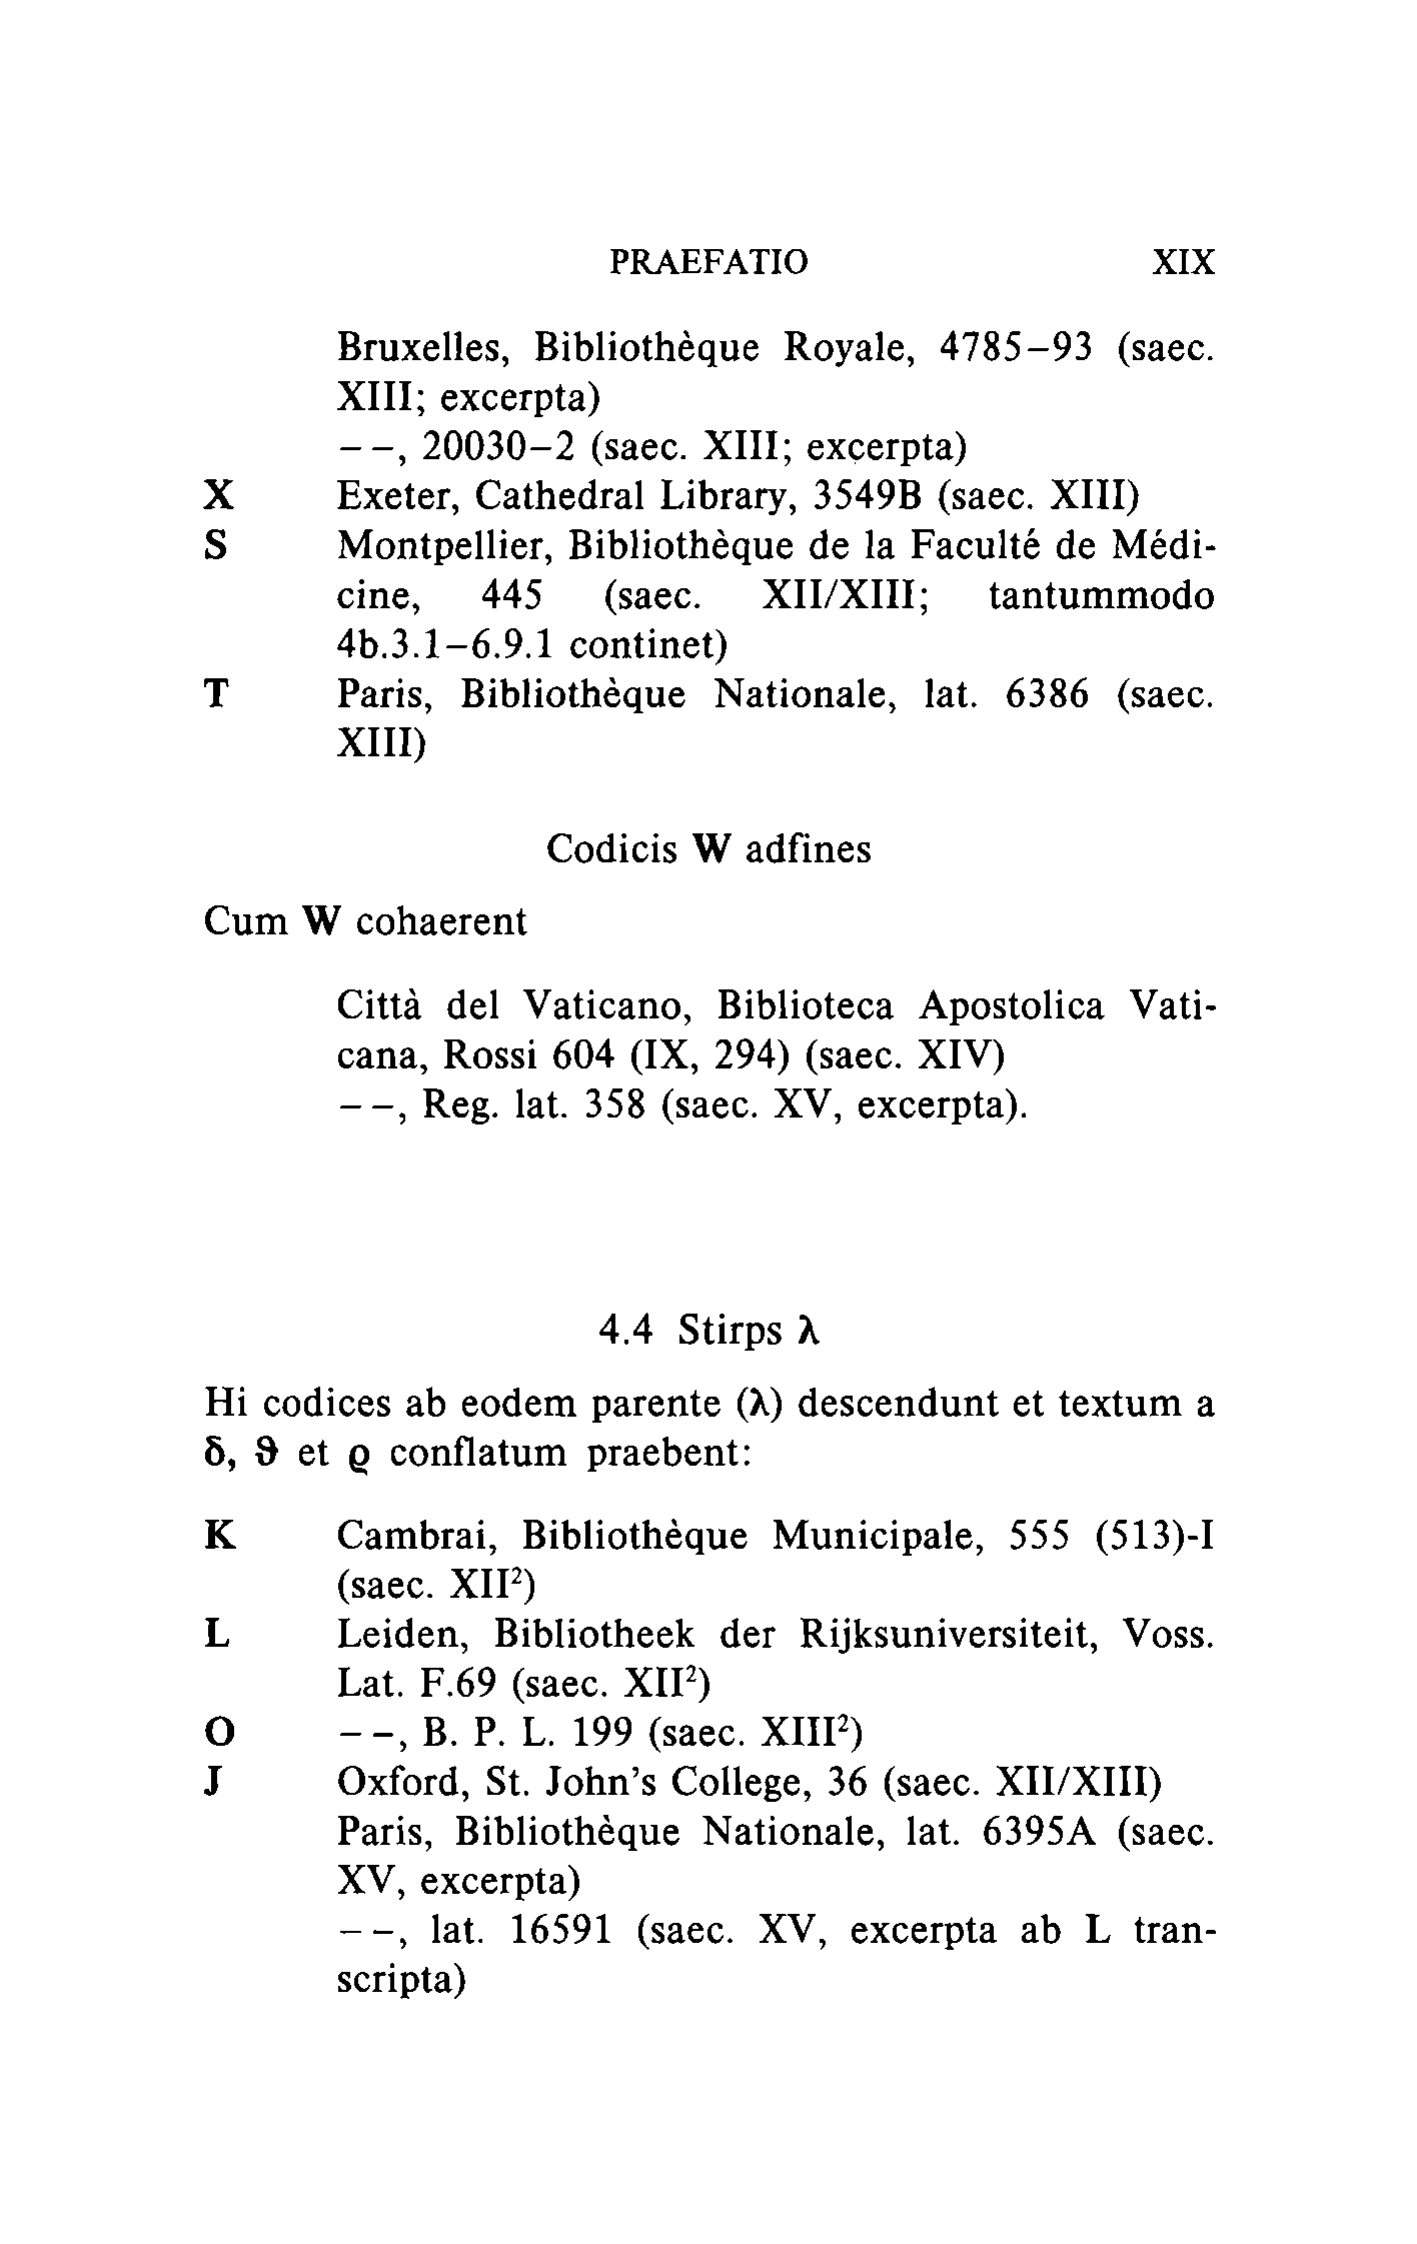 PRAEFATIO XIX
Bruxelles, Bibliothèque Royale, 4785–93 (saec.
XIII; excerpta)
– –, 20030–2 (saec. XIII; excerpta)
X Exeter, Cathedral Library, 3549B (saec. XIII)
S Montpellier, Bibliothèque de la Faculté de Médi-
cine, 445 (saec. XII/XIII; tantummodo
4b.3.1–6.9.1 continet)
T Paris, Bibliothèque Nationale, lat. 6386 (saec.
XIII)
Codicis W adfines
Cum W cohaerent
Città del Vaticano, Biblioteca Apostolica Vati-
cana, Rossi 604 (IX, 294) (saec. XIV)
– –, Reg. lat. 358 (saec. XV, excerpta).
4.4 Stirps λ
Hi codices ab eodem parente (λ) descendunt et textum a
δ, ϑ et ϱ conflatum praebent:
K Cambrai, Bibliothèque Municipale, 555 (513)-I
(saec. XII²)
L Leiden, Bibliotheek der Rijksuniversiteit, Voss.
Lat. F.69 (saec. XII²)
O – –, B. P. L. 199 (saec. XIII²)
J Oxford, St. John's College, 36 (saec. XII/XIII)
Paris, Bibliothèque Nationale, lat. 6395A (saec.
XV, excerpta)
– –, lat. 16591 (saec. XV, excerpta ab L tran-
scripta)